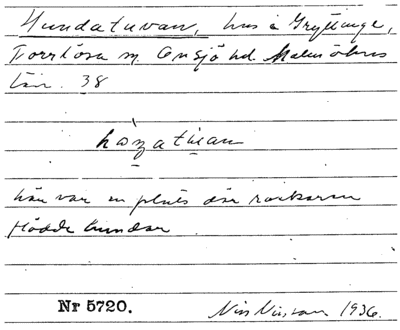 Hundatuvan, hus i Gryttinge,
Torrlösa sn Onsjö hd Malmöhus
län. 38
här var en plats där rackaren
flådde hundar
Nr 5720. Nils Nilsson 1936.